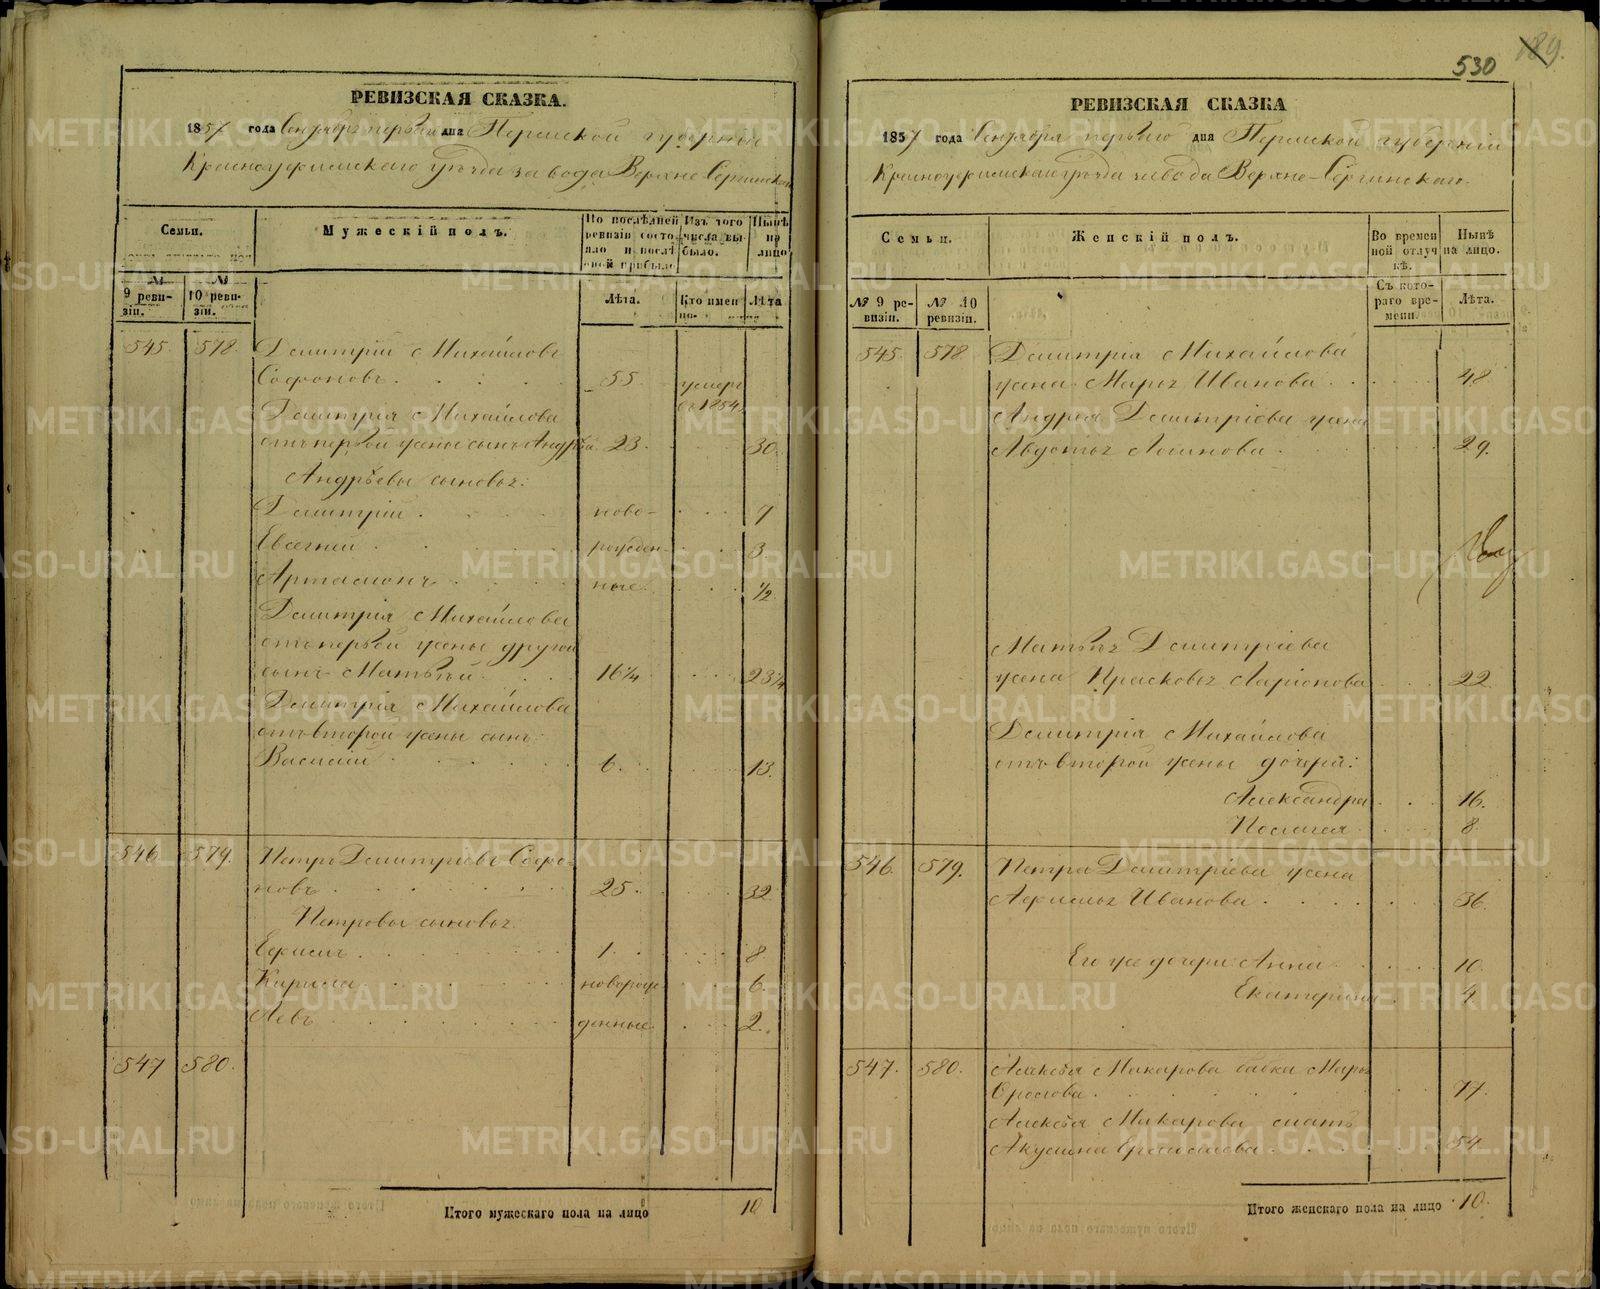 530
189.
РЕВИЗСКАЯ СКАЗКА.
1857 года Сентября первый дня Пермской губерніи
Красноуфимскаго уѣзда завода Верхне-Сергинскаго
Семьи.
Мужескій полъ.
По послѣдней ревизіи состояло и послѣ оной прибыло
Изъ того числа выбыло.
Нынѣ на лицо
№ 9 ревизіи.
№ 10 ревизіи.
Лѣта.
Кто именно
Лѣта
545. 578. Дмитрій Михайловъ
Софоновъ. 55 умеръ
въ 1854
Дмитрія Михайлова
отъ первой жены сынъ Андрѣй 23. 30.
Андрѣевы сыновья:
Дмитрій ново- 7
Евгеній рожден- 3
Артамонъ ные. 1/2
Дмитрія Михайлова
отъ первой жены другой
сынъ Матвѣй 16 1/4 23 1/4
Дмитрія Михайлова
отъ второй жены сынъ
Василій 6. 13.
546. 579. Петръ Дмитріевъ Софо-
новъ 25. 32
Петровы сыновья
Ефимъ 1. 8
Кирила новорож- 6
Левъ денные. 2.
547 580.
Итого мужескаго пола на лицо 10
РЕВИЗСКАЯ СКАЗКА
1857 года Сентября первого дня Пермской губерніи
Красноуфимскаго уѣзда завода Верхне-Сергинскаго.
Семьи.
Женскій полъ.
Во временной отлучкѣ.
Нынѣ на лицо.
№ 9 ревизіи.
№ 10 ревизіи.
Съ котораго времени.
Лѣта.
545. 578 Дмитрія Михайлова
жена Марья Иванова 48
Андрея Дмитріева жена
Авдотья Логинова 29.
Матвѣя Дмитріева
жена Прасковья Ларіонова 22
Дмитрія Михайлова
отъ второй жены дочери:
Александра 16.
Пелагея 8.
546. 579. Петра Дмитріева жена
Афимья Иванова 36.
Его же дочери Анна 10
Екатерина 4
547. 580. Алексѣя Макарова бабка Марья
Фролова 77.
Алексѣя Макарова мать
Акулина 54
Итого женскаго пола на лицо 10.
METRIKI.GASO-URAL.RU